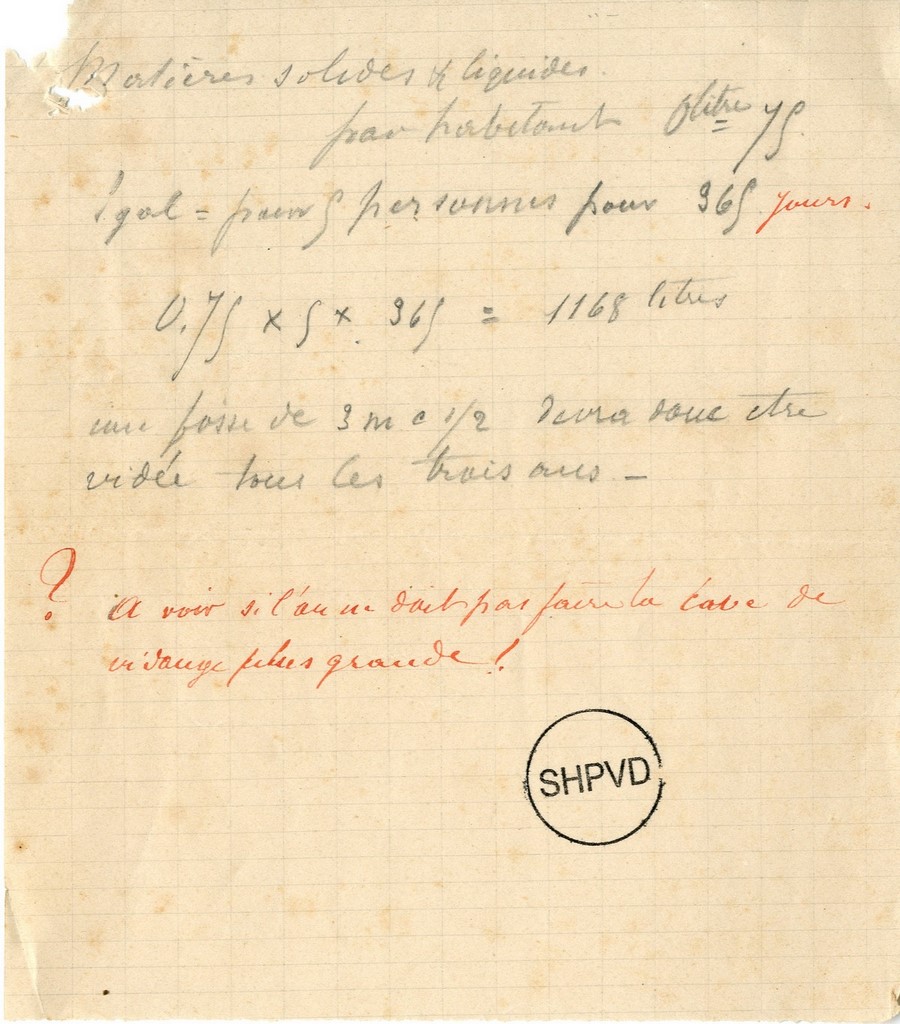 Matières solides & liquides.
par habitant 0 litre 75
Égal = pour 5 personnes pour 365 jours.
0.75 x 5 x 365 = 1168 litres
une fosse de 3 m c 1/2 devra donc etre
vidée tous les trois ans -
? A voir si l'on ne doit pas faire la cave de
vidange plus grande !
SHPVD